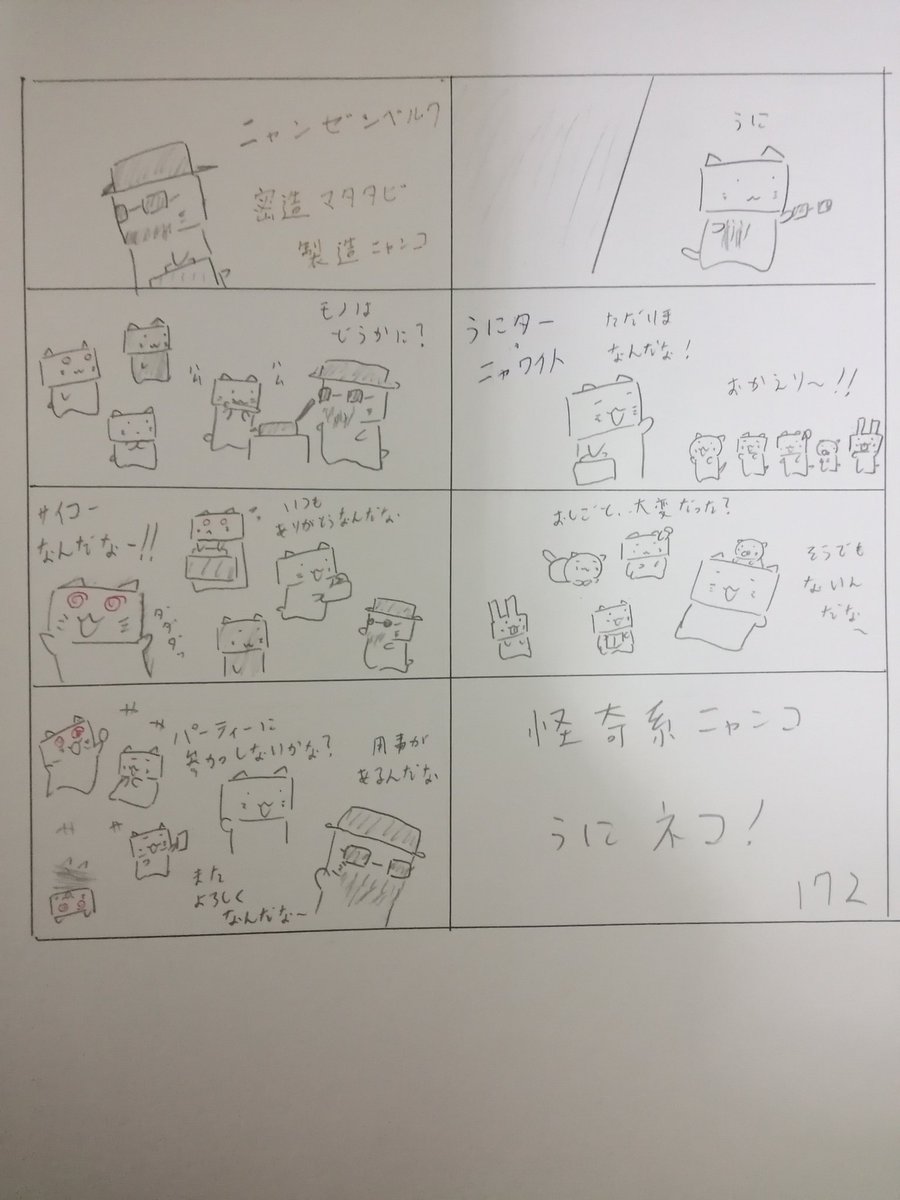 ニャンゼンベルク
密造マタタビ
製造ニャンコ
モノは
どうかに?
ハム
ハム
サイコー
なんだなー!!
ダ
ダ
ダッ
いつも
ありがとうなんだな
パーティーに
参加しないかな?
用事が
あるんだな
また
よろしく
なんだな〜
うに
うにター
ニャワイト
ただいま
なんだな!
おかえり〜!!
おしごと、大変だった?
そうでも
ないん
だな〜
怪奇系ニャンコ
うにネコ!
172